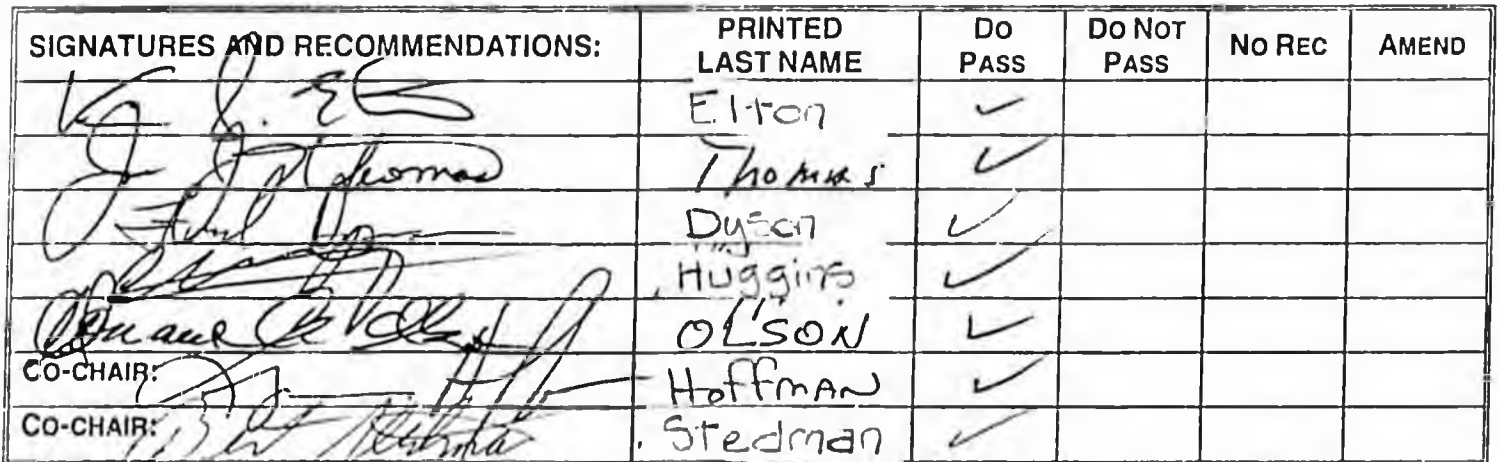 SIGNATURES AND RECOMMENDATIONS: PRINTED LAST NAME DO PASS DO NOT PASS NO REC AMEND
Elton ✓
Thomas Thomas ✓
Dyson ✓
Huggins ✓
OLSON ✓
CO-CHAIR: HoffmAN ✓
CO-CHAIR: Stedman ✓